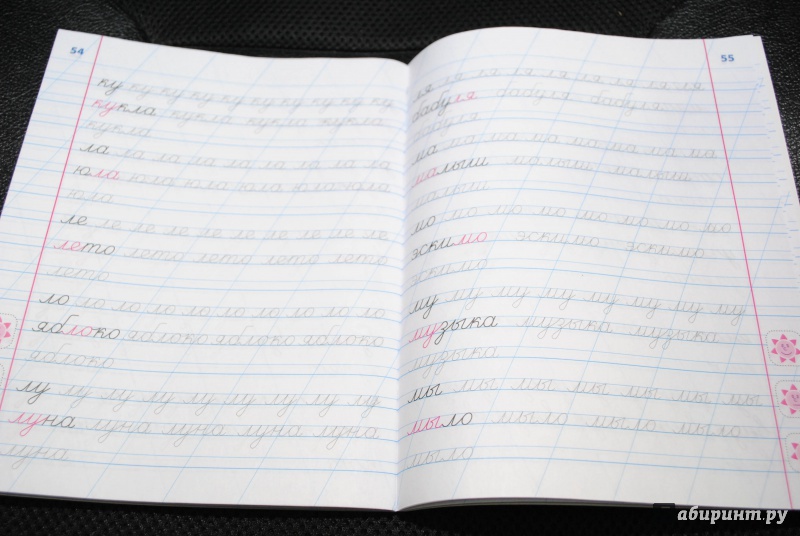 54
ку ку ку ку ку ку ку ку ку ку
кукла кукла кукла кукла
кукла
ла ла ла ла ла ла ла ла ла
юла юла юла юла юла юла
юла
ле ле ле ле ле ле ле ле ле
лето лето лето лето лето
лето
ло ло ло ло ло ло ло ло ло
яблоко яблоко яблоко яблоко
яблоко
лу лу лу лу лу лу лу лу лу
луна луна луна луна луна
луна
55
ля ля ля ля ля ля ля ля ля
бабуля бабуля бабуля
бабуля
ма ма ма ма ма ма ма ма
малыш малыш малыш
малыш
мо мо мо мо мо мо мо мо
эскимо эскимо эскимо
эскимо
му му му му му му му му
музыка музыка музыка
музыка
мы мы мы мы мы мы мы мы
мыло мыло мыло мыло
мыло
абиринт.ру